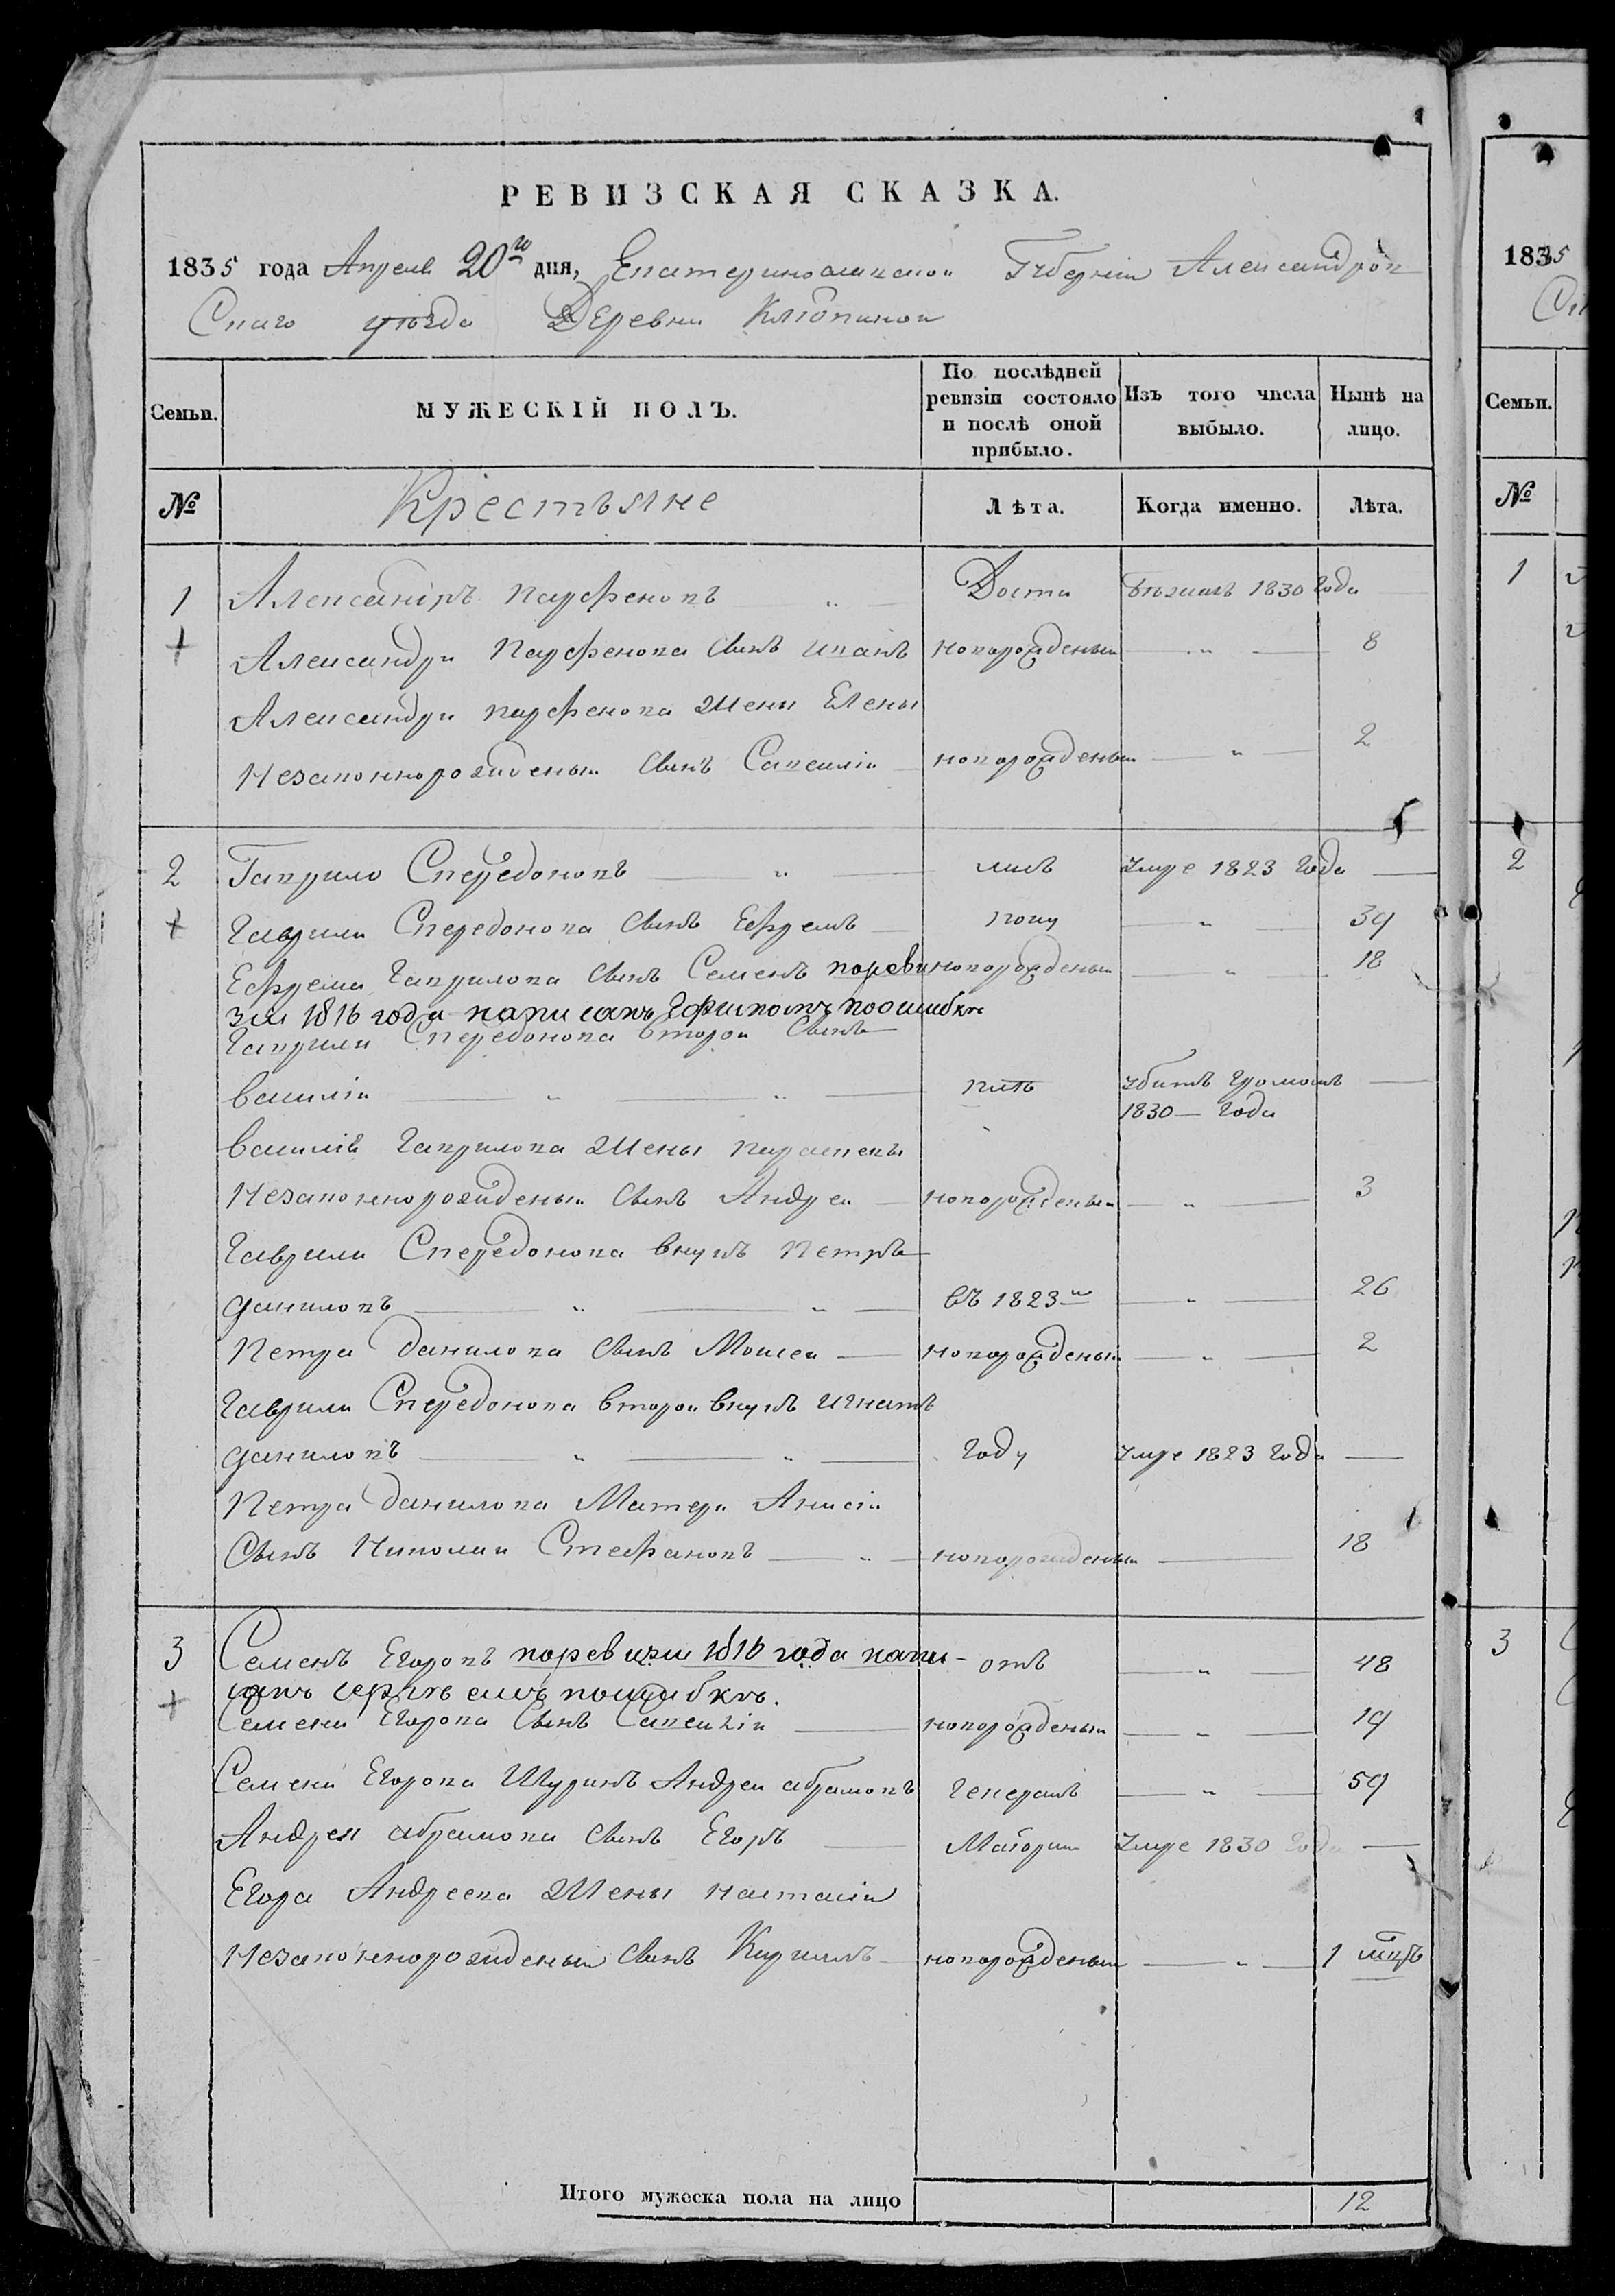 РЕВИЗСКАЯ СКАЗКА.
1835 года Апреля 20го дня, Екатеринославской Губернии Александров
Скаго уезда Деревни Клюпиной
Семьи. МУЖЕСКІЙ ПОЛЪ. По послѣдней ревизіи состояло и послѣ оной прибыло. Изъ того числа выбыло. Нынѣ на лицо.
№ Крестьяне Лѣта. Когда именно. Лѣта.
1 Александръ Парфеновъ " 1830 года
Александра Парфенова сынъ Иванъ новорожденый " 8
Александра Парфенова жены Елены
Незаконнорожденый сынъ Савелій новорожденый " 2
2 Гаврило Спередоновъ " умре 1823 года
Гаврили Спередонова сынъ Ефремъ " 39
Ефрема Гаврилова сынъ Семенъ поревиноворожденый " 18
зіи 1816 года написанъ Ефимомъ поошибке
Гаврили Спередонова второй сынъ
Василій " " пять убитъ громомъ
1830 года
Василія Гаврилова жены Параскевы
Незаконнорожденый сынъ Андрей новорожденый " 3
Гаврили Спередонова внукъ Петръ
Даниловъ " " въ 1823м " 26
Петра Данилова сынъ Моисей новорожденый " 2
Гаврили Спередонова второй внукъ Игнатъ
Даниловъ " " году умре 1823 года
Петра Данилова Матери Анисіи
Сынъ Николай Стефановъ " новорожденый 18
3 Семенъ Егоровъ поревизіи 1816 года напи-
санъ поошибкѣ. " 48
Семена Егорова сынъ Савелій новорожденый " 19
Семена Егорова Шуринъ Андрей Абрамовъ " 59
Андрея Абрамова сынъ Егоръ умре 1830 года
Егора Андреева жены Настасіи
Незаконнорожденый сынъ Кирилъ новорожденый " 1
Итого мужеска пола на лицо 12
1835
Семьи.
№
1
2
3